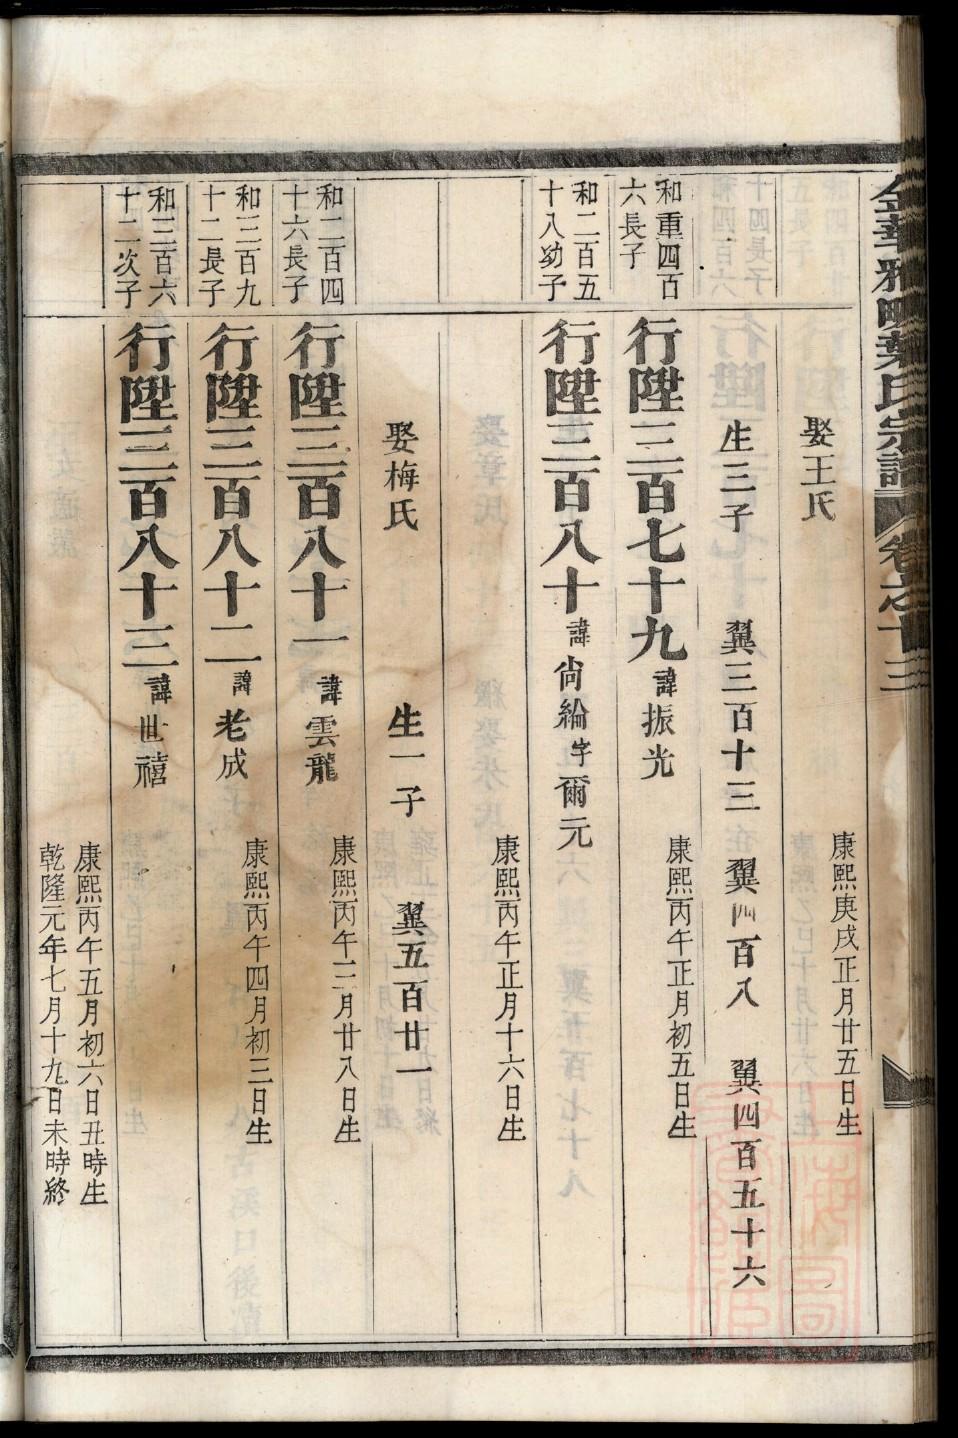 康熙庚戌正月廿五日生
娶王氏
生三子 翼三百十三 翼四百八 翼四百五十六
和重四百六長子
行陞三百七十九 諱振光
康熙丙午正月初五日生
和二百五十八幼子
行陞三百八十 諱尙綸字爾元
康熙丙午正月十六日生
娶梅氏 生一子 翼五百廿一
和二百四十六長子
行陞三百八十一 諱雲龍
康熙丙午二月廿八日生
和三百九十二長子
行陞三百八十二 諱老成
康熙丙午四月初三日生
和三百六十二次子
行陞三百八十三 諱世禧
康熙丙午五月初六日丑時生
乾隆元年七月十九日未時終
葉氏宗譜 卷之十三